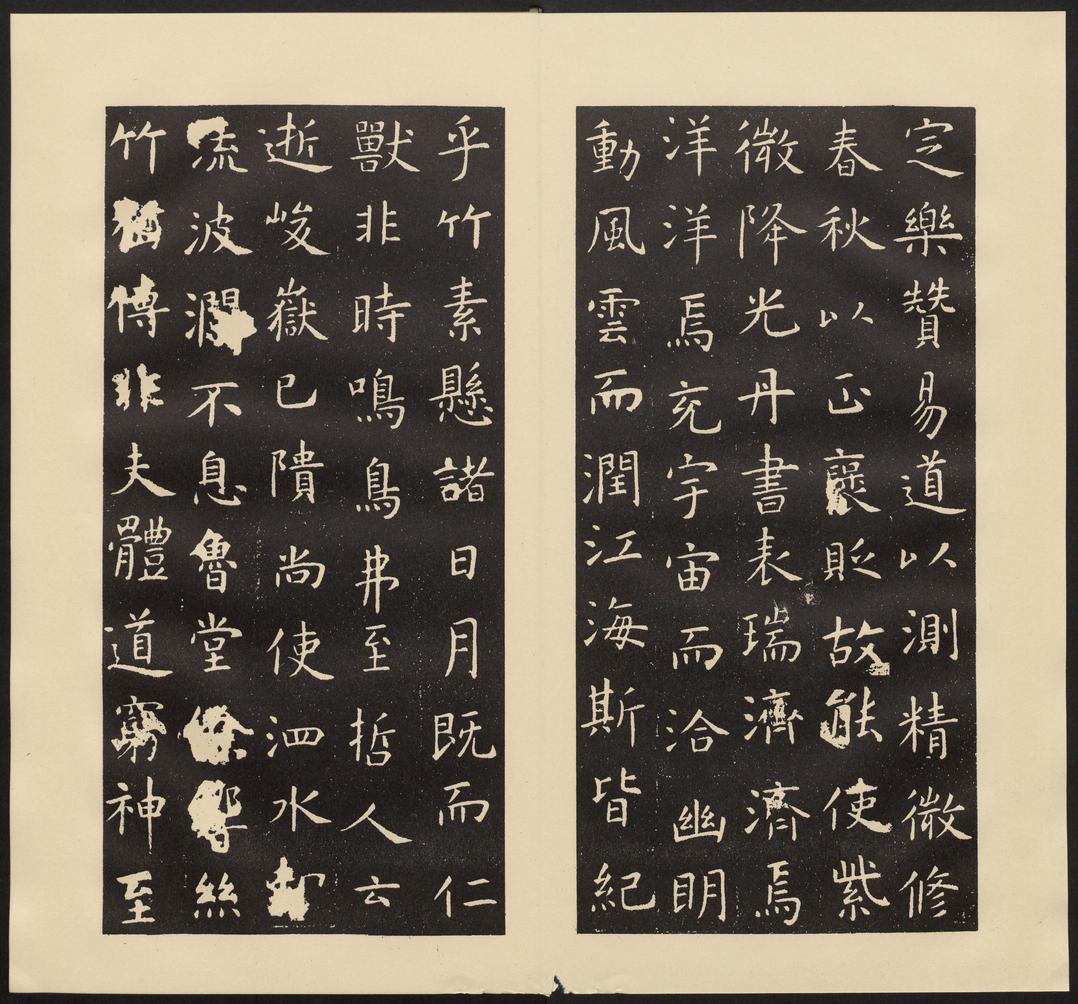 定樂贊易道以測精微修
春秋以正褒貶故能使紫
微降光丹書表瑞濟濟焉
洋洋焉充宇宙而洽幽明
動風雲而潤江海斯皆紀
乎竹素懸諸日月既而仁
獸非時鳴鳥弗至哲人云
逝峻嶽已隤尚使泗水却
流波瀾不息魯堂餘響絲
竹猶傳非夫體道窮神至